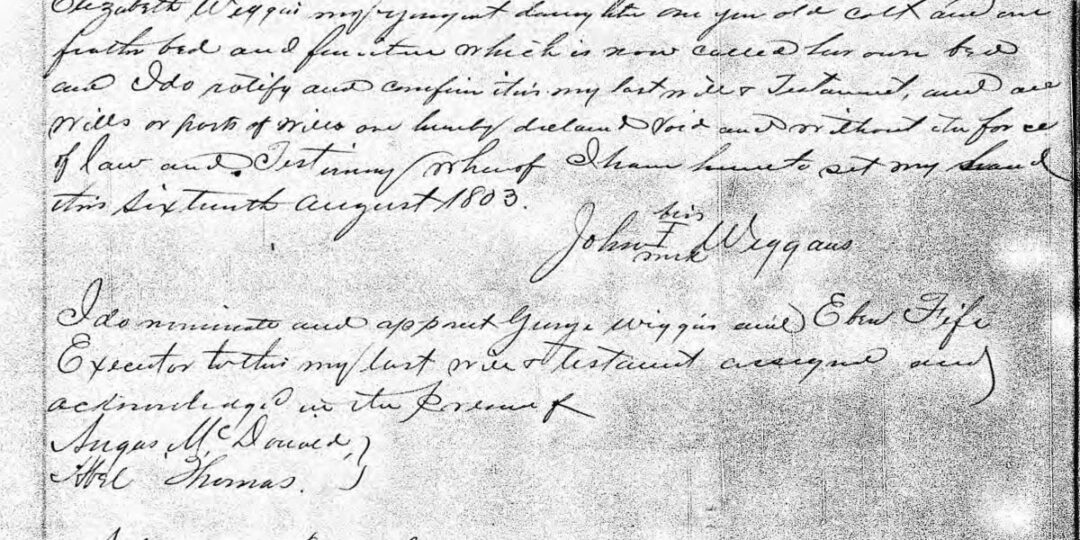 Elizabeth Wiggins my youngest daughter one year old colt and one
feather bed and furniture which is now called her own bed
and I do ratify and confirm this my last will & Testament, and all
Wills or parts of wills are hereby declared Void and without its force
of law and Testimony Whereof I have hereunto set my hand
this sixteenth August 1803.
his
John I Wiggans
mark
I do nominate and appoint George Wiggins and Eben Fife
Executor to this my last will & testament assigned and
acknowledged in the Presence of
Angas McDonald,
Abel Thomas.